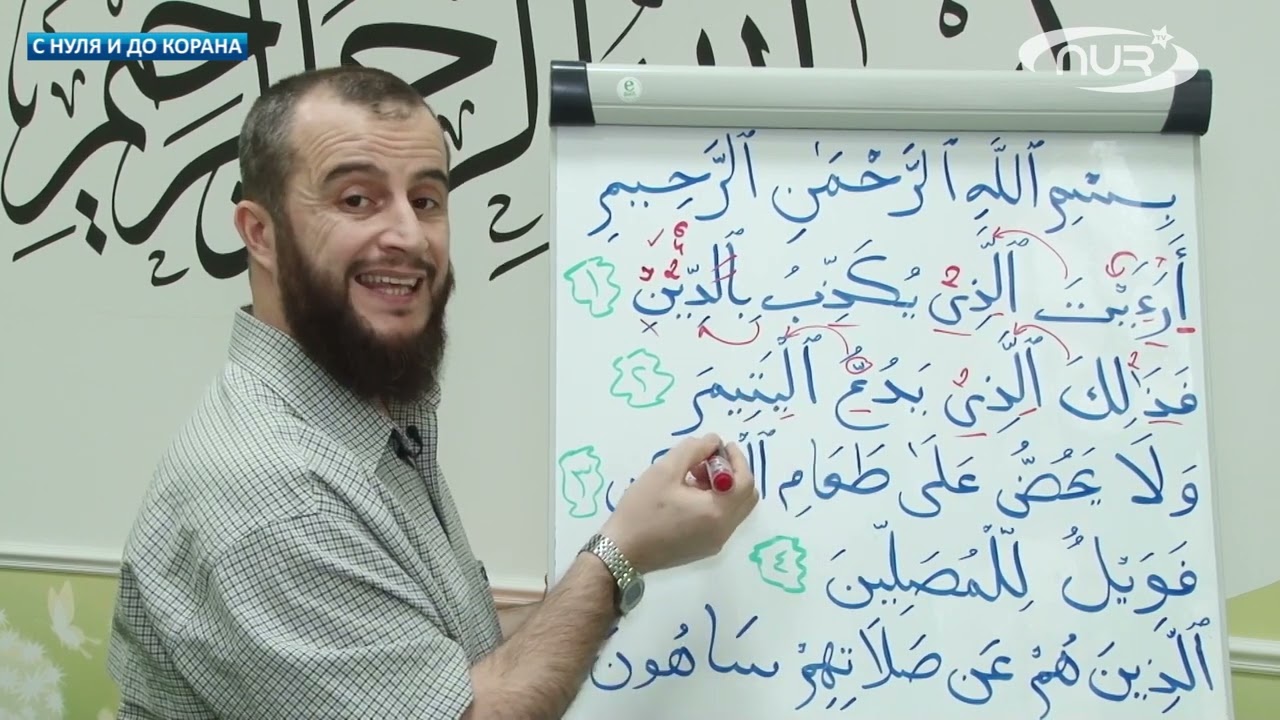 С НУЛЯ И ДО КОРАНА
NUR TV
بِسْمِ ٱللَّهِ ٱلرَّحْمَٰنِ ٱلرَّحِيمِ
أَرَءَيْتَ ٱلَّذِى يُكَذِّبُ بِٱلدِّينِ ١
فَذَٰلِكَ ٱلَّذِى يَدُعُّ ٱلْيَتِيمَ ٢
وَلَا يَحُضُّ عَلَىٰ طَعَامِ ٣
فَوَيْلٌ لِّلْمُصَلِّينَ ٤
ٱلَّذِينَ هُمْ عَن صَلَاتِهِمْ سَاهُونَ